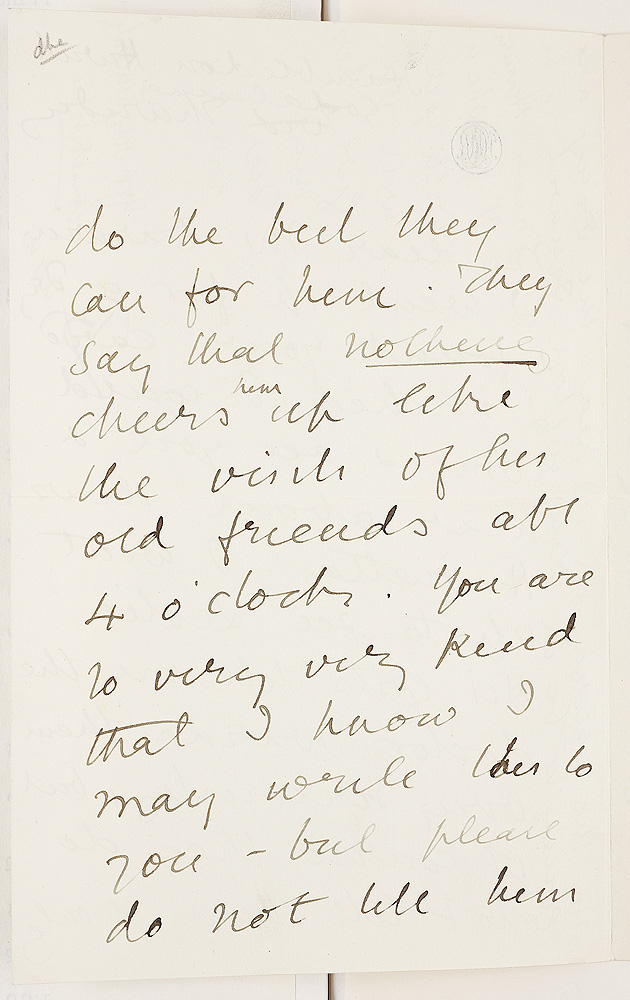 do the best they
can for him. They
say that nothing
cheers him up like
the visits of his
old friends abt
4 o'clock. You are
so very very kind
that I know I
may write this to
you - but please
do not tell him